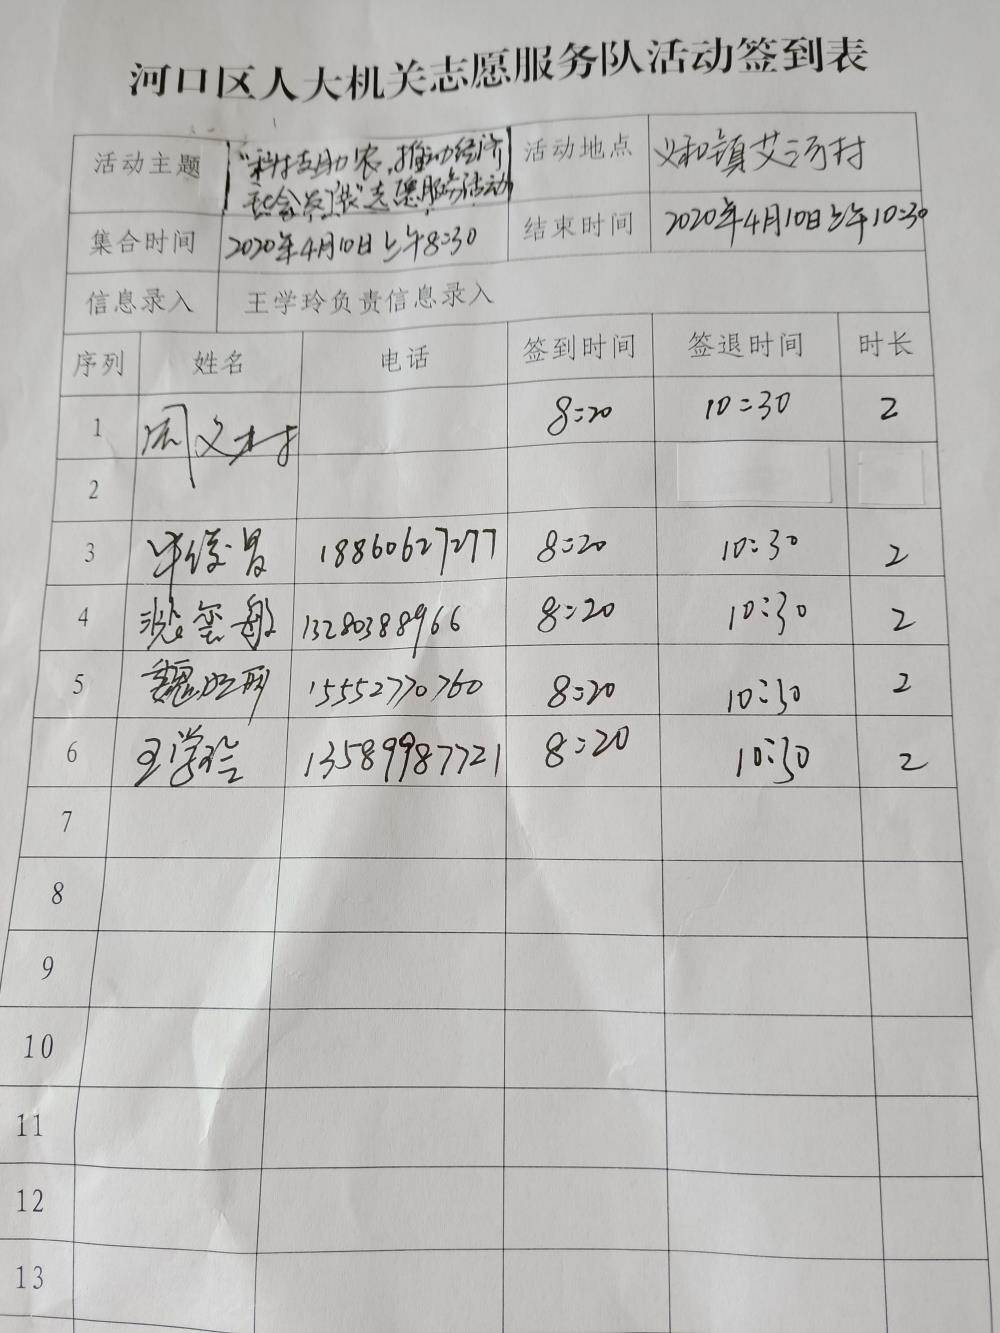 河口区人大机关志愿服务队活动签到表
活动主题 "科技助农,推动经济社会发展"志愿服务活动 活动地点 义和镇艾河村
集合时间 2020年4月10日上午8:30 结束时间 2020年4月10日上午10:30
信息录入 王学玲负责信息录入
序列 姓名 电话 签到时间 签退时间 时长
1 周文村 8:20 10:30 2
2
3 18860627277 8:20 10:30 2
4 13280388966 8:20 10:30 2
5 魏 15552770760 8:20 10:30 2
6 王学玲 13589987721 8:20 10:30 2
7
8
9
10
11
12
13